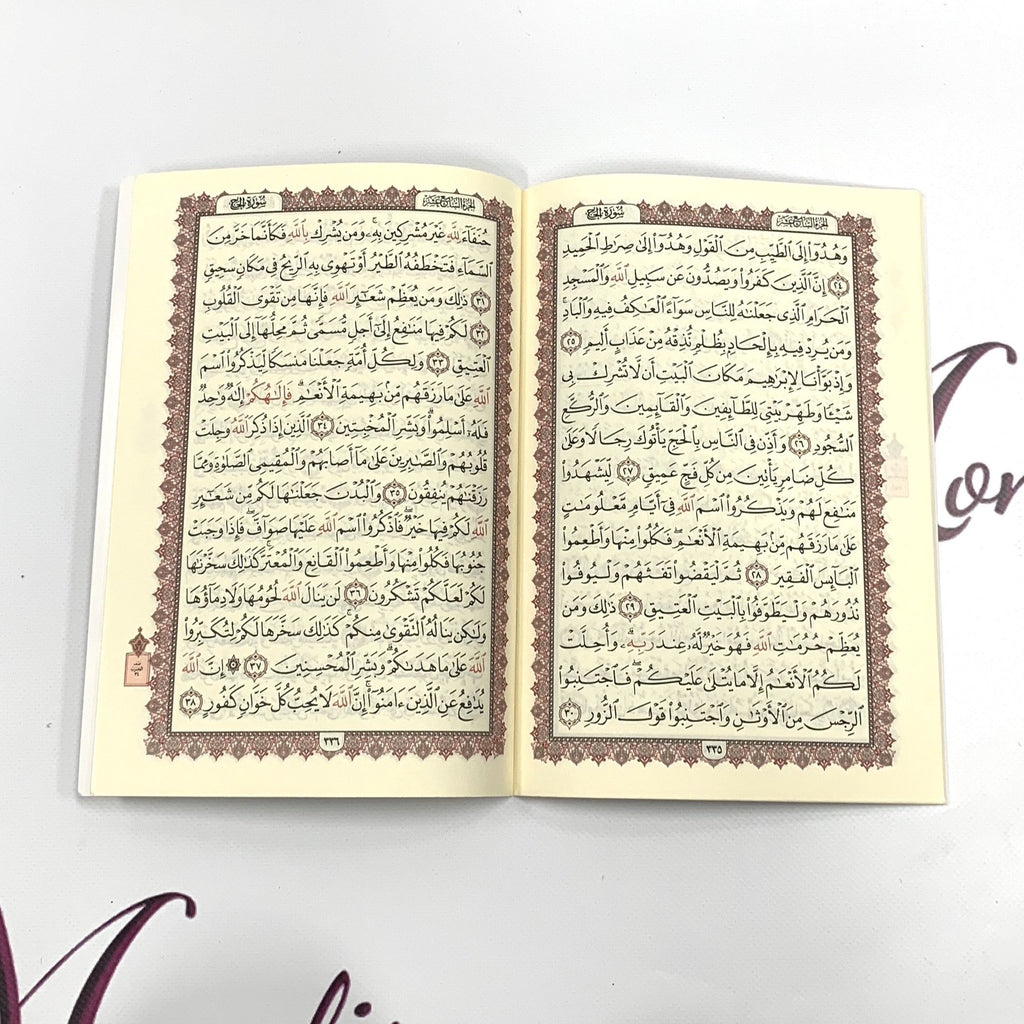 الجزء السابع عشر
سورة الحج
وَهُدُوٓا۟ إِلَى ٱلطَّيِّبِ مِنَ ٱلْقَوْلِ وَهُدُوٓا۟ إِلَىٰ صِرَٰطِ ٱلْحَمِيدِ
٢٤ إِنَّ ٱلَّذِينَ كَفَرُوا۟ وَيَصُدُّونَ عَن سَبِيلِ ٱللَّهِ وَٱلْمَسْجِدِ
ٱلْحَرَامِ ٱلَّذِى جَعَلْنَٰهُ لِلنَّاسِ سَوَآءً ٱلْعَٰكِفُ فِيهِ وَٱلْبَادِ ۚ
وَمَن يُرِدْ فِيهِ بِإِلْحَادٍۭ بِظُلْمٍ نُّذِقْهُ مِنْ عَذَابٍ أَلِيمٍ ٢٥
وَإِذْ بَوَّأْنَا لِإِبْرَٰهِيمَ مَكَانَ ٱلْبَيْتِ أَن لَّا تُشْرِكْ بِى
شَيْـًٔا وَطَهِّرْ بَيْتِىَ لِلطَّآئِفِينَ وَٱلْقَآئِمِينَ وَٱلرُّكَّعِ
ٱلسُّجُودِ ٢٦ وَأَذِّن فِى ٱلنَّاسِ بِٱلْحَجِّ يَأْتُوكَ رِجَالًا وَعَلَىٰ
كُلِّ ضَامِرٍ يَأْتِينَ مِن كُلِّ فَجٍّ عَمِيقٍ ٢٧ لِّيَشْهَدُوا۟
مَنَٰفِعَ لَهُمْ وَيَذْكُرُوا۟ ٱسْمَ ٱللَّهِ فِىٓ أَيَّامٍ مَّعْلُومَٰتٍ
عَلَىٰ مَا رَزَقَهُم مِّنۢ بَهِيمَةِ ٱلْأَنْعَٰمِ ۖ فَكُلُوا۟ مِنْهَا وَأَطْعِمُوا۟
ٱلْبَآئِسَ ٱلْفَقِيرَ ٢٨ ثُمَّ لْيَقْضُوا۟ تَفَثَهُمْ وَلْيُوفُوا۟
نُذُورَهُمْ وَلْيَطَّوَّفُوا۟ بِٱلْبَيْتِ ٱلْعَتِيقِ ٢٩ ذَٰلِكَ وَمَن
يُعَظِّمْ حُرُمَٰتِ ٱللَّهِ فَهُوَ خَيْرٌ لَّهُۥ عِندَ رَبِّهِۦ ۗ وَأُحِلَّتْ
لَكُمُ ٱلْأَنْعَٰمُ إِلَّا مَا يُتْلَىٰ عَلَيْكُمْ ۖ فَٱجْتَنِبُوا۟
ٱلرِّجْسَ مِنَ ٱلْأَوْثَٰنِ وَٱجْتَنِبُوا۟ قَوْلَ ٱلزُّورِ ٣٠
٣٣٥
الجزء السابع عشر
سورة الحج
حُنَفَآءَ لِلَّهِ غَيْرَ مُشْرِكِينَ بِهِۦ ۚ وَمَن يُشْرِكْ بِٱللَّهِ فَكَأَنَّمَا خَرَّ مِنَ
ٱلسَّمَآءِ فَتَخْطَفُهُ ٱلطَّيْرُ أَوْ تَهْوِى بِهِ ٱلرِّيحُ فِى مَكَانٍ سَحِيقٍ
٣١ ذَٰلِكَ وَمَن يُعَظِّمْ شَعَٰٓئِرَ ٱللَّهِ فَإِنَّهَا مِن تَقْوَى ٱلْقُلُوبِ
٣٢ لَكُمْ فِيهَا مَنَٰفِعُ إِلَىٰٓ أَجَلٍ مُّسَمًّى ثُمَّ مَحِلُّهَآ إِلَى ٱلْبَيْتِ
ٱلْعَتِيقِ ٣٣ وَلِكُلِّ أُمَّةٍ جَعَلْنَا مَنسَكًا لِّيَذْكُرُوا۟ ٱسْمَ
ٱللَّهِ عَلَىٰ مَا رَزَقَهُم مِّنۢ بَهِيمَةِ ٱلْأَنْعَٰمِ ۗ فَإِلَٰهُكُمْ إِلَٰهٌ وَٰحِدٌ
فَلَهُۥٓ أَسْلِمُوا۟ ۗ وَبَشِّرِ ٱلْمُخْبِتِينَ ٣٤ ٱلَّذِينَ إِذَا ذُكِرَ ٱللَّهُ وَجِلَتْ
قُلُوبُهُمْ وَٱلصَّٰبِرِينَ عَلَىٰ مَآ أَصَابَهُمْ وَٱلْمُقِيمِى ٱلصَّلَوٰةِ وَمِمَّا
رَزَقْنَٰهُمْ يُنفِقُونَ ٣٥ وَٱلْبُدْنَ جَعَلْنَٰهَا لَكُم مِّن شَعَٰٓئِرِ
ٱللَّهِ لَكُمْ فِيهَا خَيْرٌ ۖ فَٱذْكُرُوا۟ ٱسْمَ ٱللَّهِ عَلَيْهَا صَوَآفَّ ۖ فَإِذَا وَجَبَتْ
جُنُوبُهَا فَكُلُوا۟ مِنْهَا وَأَطْعِمُوا۟ ٱلْقَانِعَ وَٱلْمُعْتَرَّ ۚ كَذَٰلِكَ سَخَّرْنَٰهَا
لَكُمْ لَعَلَّكُمْ تَشْكُرُونَ ٣٦ لَن يَنَالَ ٱللَّهَ لُحُومُهَا وَلَا دِمَآؤُهَا
وَلَٰكِن يَنَالُهُ ٱلتَّقْوَىٰ مِنكُمْ ۚ كَذَٰلِكَ سَخَّرَهَا لَكُمْ لِتُكَبِّرُوا۟
ٱللَّهَ عَلَىٰ مَا هَدَىٰكُمْ ۗ وَبَشِّرِ ٱلْمُحْسِنِينَ ٣٧ ۞ إِنَّ ٱللَّهَ
يُدَٰفِعُ عَنِ ٱلَّذِينَ ءَامَنُوٓا۟ ۗ إِنَّ ٱللَّهَ لَا يُحِبُّ كُلَّ خَوَّانٍ كَفُورٍ ٣٨
٣٣٦